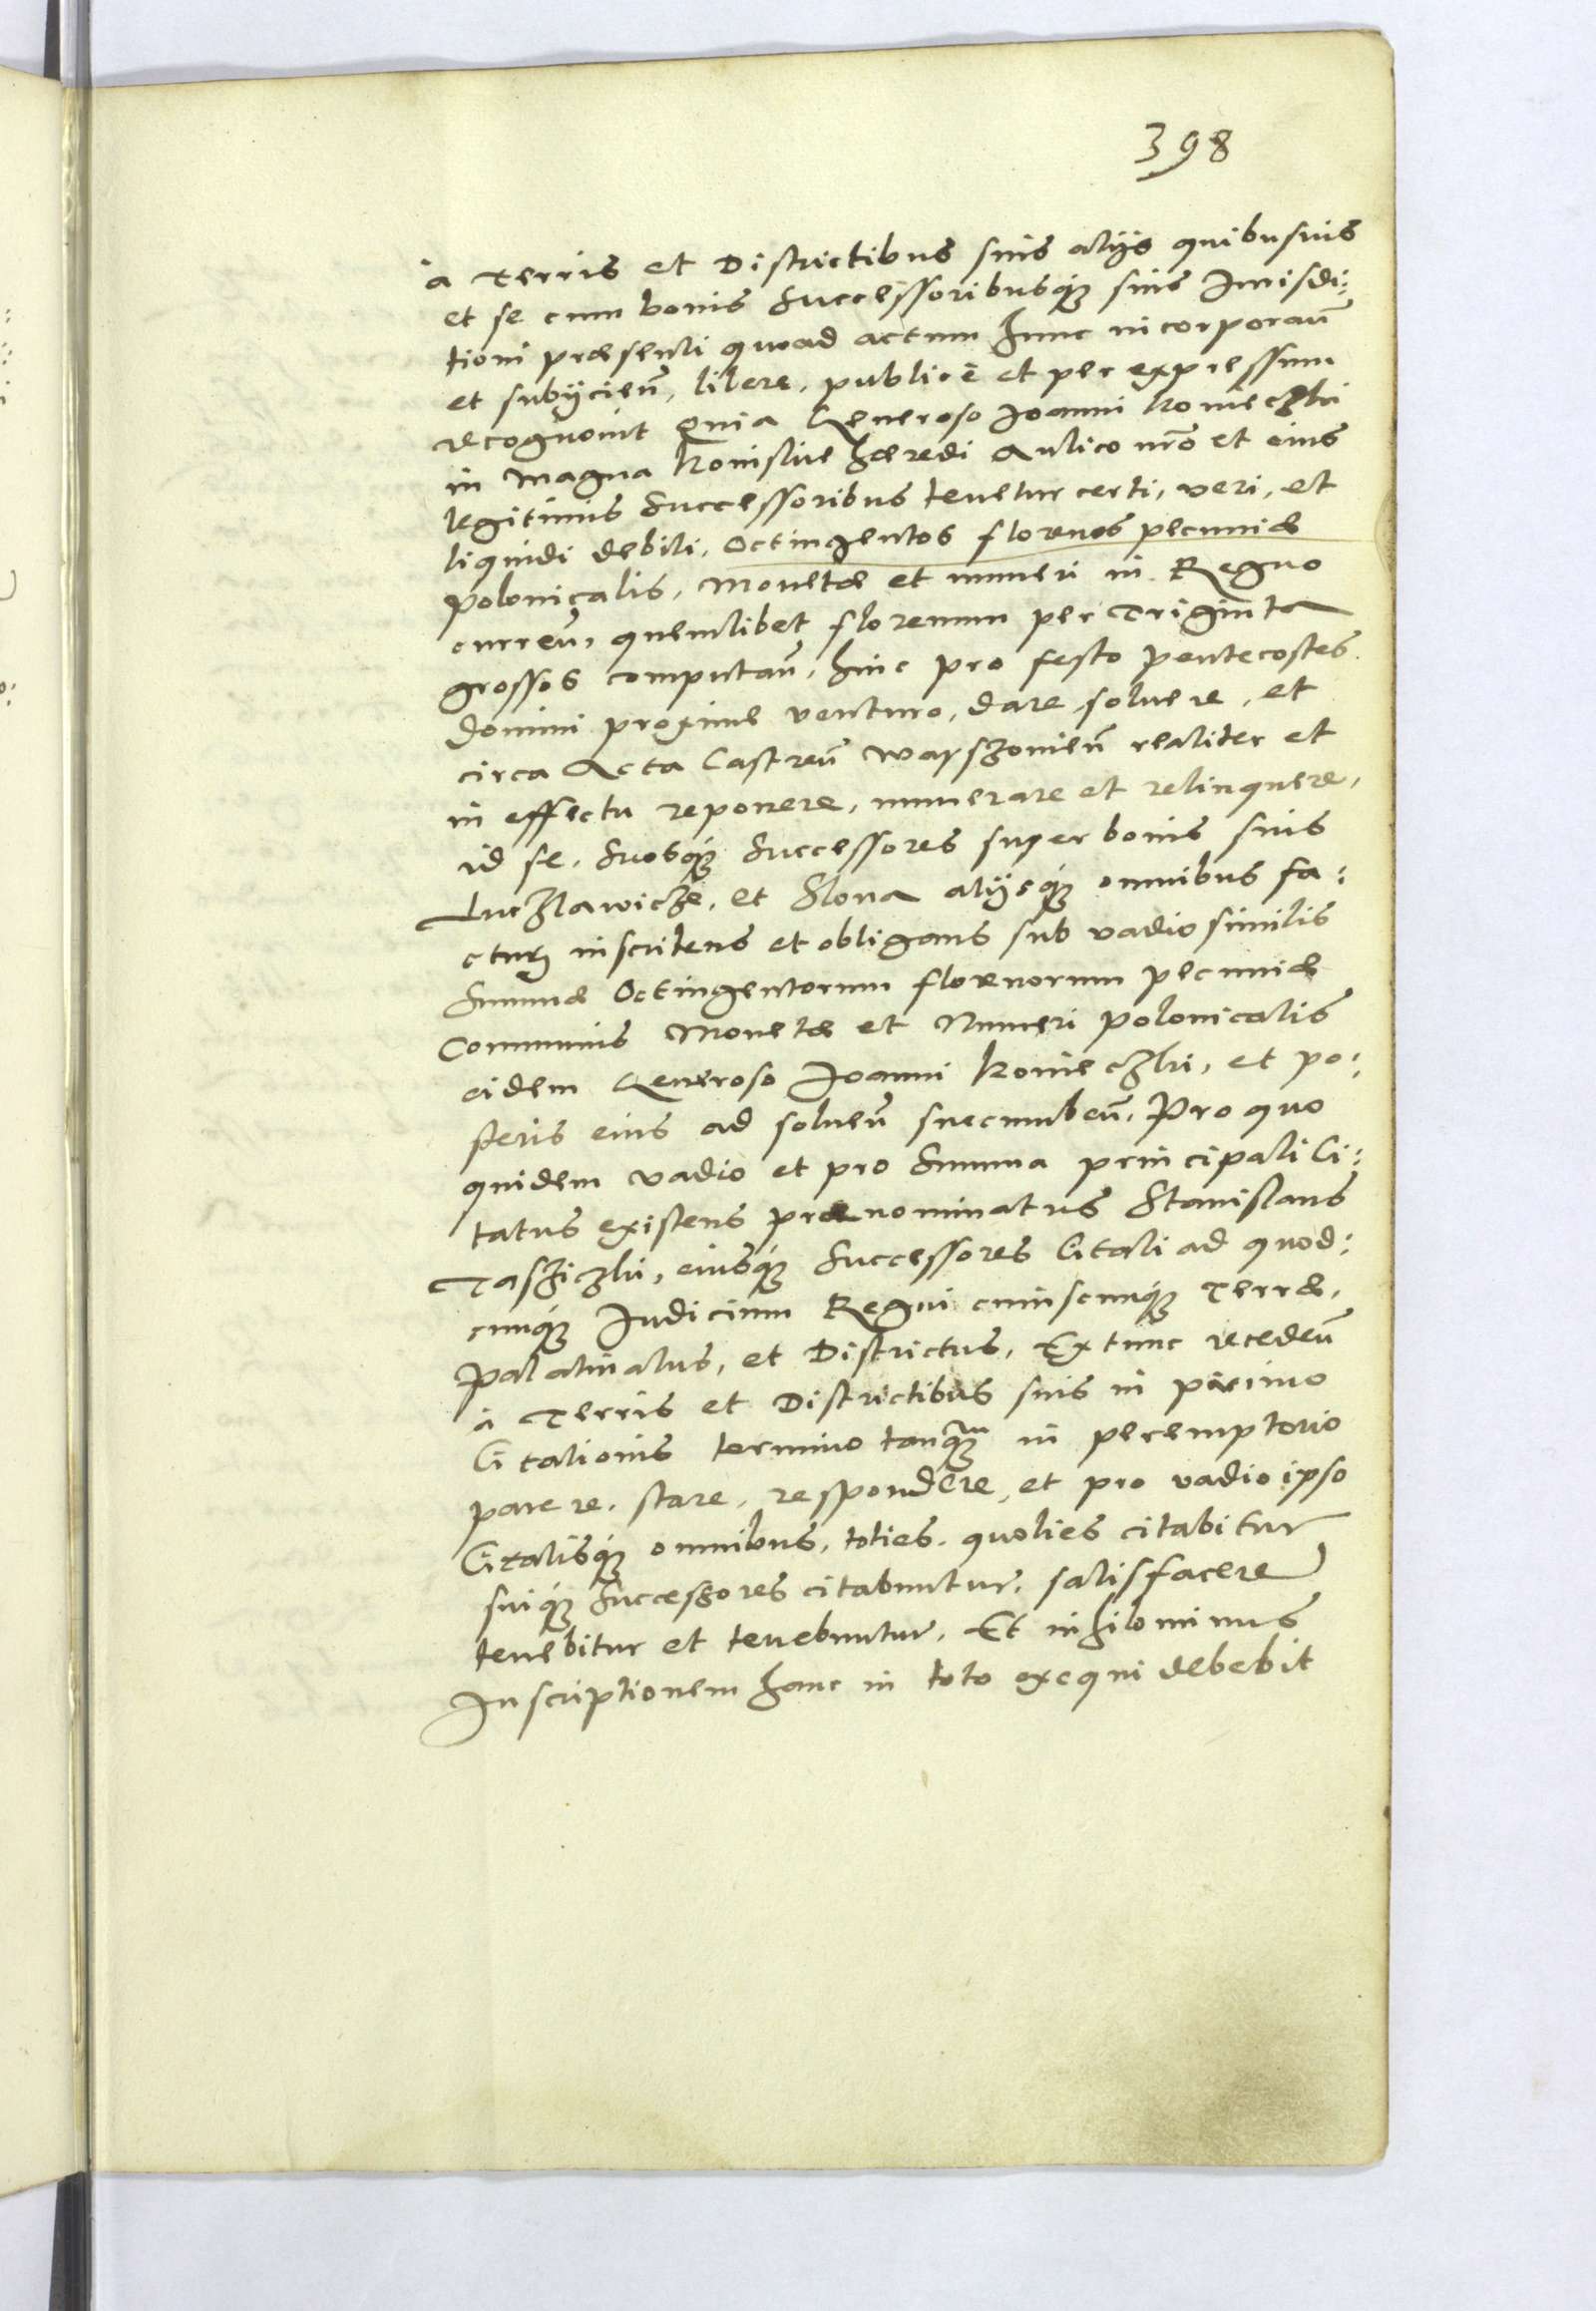 398
a Terris et Districtibus suis alijs quibusuis
et se cum bonis Successoribusq₃ suis Jurisdi:
tioni præsenti quoad actum hunc incorporan̄
et subijcien̄, libere, publicè et per expressum
recognouit Quia Generoso Joanni Konieczki
in Magna Koniskie hæredi Aulico nr̄o et eius
legitimis Successoribus tenetur certi, veri, et
liquidi debiti, Octingentos florenos pecuniæ
Polonicalis, Monetæ et numeri in Regno
curren̄, quemlibet florenum per Triginta
grossos computan̄, hinc pro festo Pentecostes
Domini proxime venturo, dare, soluere, et
circa Acta Castren̄ Warszouien̄ realiter et
in effectu reponere, numerare et relinquere,
id se, Suosq₃ Successores super bonis suis
Luczlawicze, et Slona alijsq₃ omnibus fa:
ctur₎ inscribens et obligans sub vadio similis
Summæ Octingentorum florenorum pecuniæ
Communis Monetæ et Numeri Polonicalis
eidem Generoso Joanni Konieczki, et po:
steris eius ad soluen̄ succumben̄. Pro quo
quidem vadio et pro Summa principali Ci:
tatus existens prænominatus Stanislaus
Tasziczki, eiusq₃ Successores Citati ad quod:
cunq₃ Judicium Regni cuiuscunq₃ Terræ,
Palatinatus, et Districtus, Extunc receden̄
à Terris et Districtibus suis in primo
Citationis termino tanq₃ in peremptorio
parere, stare, respondere, et pro vadio ipso
Citatisq₃ omnibus, toties, quoties citabitur
suiq₃ Successores citabuntur, satisfacere
tenebitur et tenebuntur. Et nihilominus
Inscriptionem hanc in toto exequi debebit